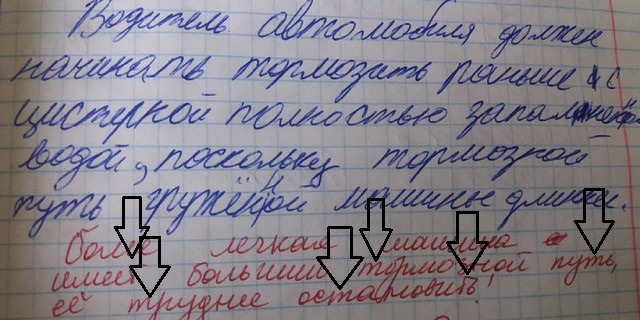 Водитель автомобиля должен
начинать тормозить раньше с
цистерной полностью заполненной
водой, поскольку тормозной
путь гружённой машины длиннее.
Более легкая машина
имеет больший тормозной путь,
её труднее остановить!